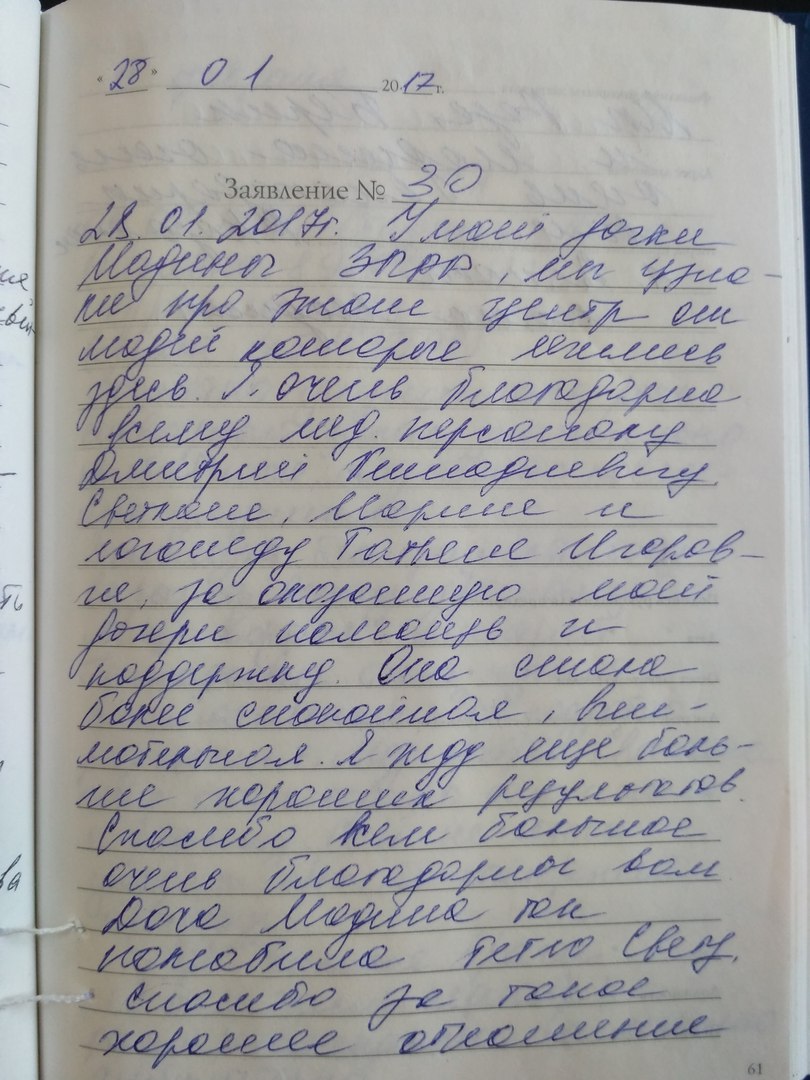 «28» 01 2017г.
Заявление № 30
28.01.2017г. У моей дочки
Мадины ЗПРР, мы узна-
ли про этот центр от
людей которые лечились
здесь. Я очень благодарна
всему мед. персоналу
Дмитрий Геннадиевичу,
Светлане, Марине и
логопеду Татьяне Игоров-
не, за оказанную моей
дочери помощь и
поддержку. Она стала
более спокойная, вни-
мательная. Я жду еще боль-
ше хороших результатов.
Спасибо всем большое
очень благодарны вам
Доча Мадина так
полюбила тетю Свету,
спасибо за такое
хорошее отношение
61